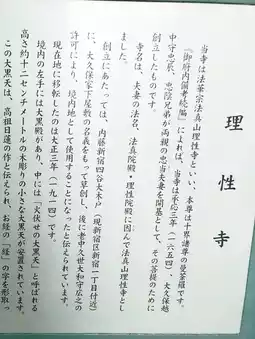 理性寺
当寺は法華宗法真山理性寺といい、本尊は十界諸尊の曼荼羅です。
『御府内備考続編』によれば、当寺は承応三年（一六五四）、大久保越
中守忠辰、忠陰兄弟が両親の忠当夫妻を開基として、その菩提のために
創立したものです。
寺名は、夫妻の法名、法真院殿・理性院殿に因んで法真山理性寺とし
ました。
創立にあたっては、内藤新宿四谷大木戸（現新宿区新宿一丁目付近）
に、大久保家下屋敷の名義をもって草創し、後に老中久世大和守広之の
許可により、境内地として使用することになったと伝えられています。
現在地に移転したのは大正三年（一九一四）です。
境内の左手には大黒殿があり、中には「火伏せの大黒天」と呼ばれる
高さ約十二センチメートルの木彫りの小さな大黒天が安置されています。
この大黒天は、高祖日蓮の作と伝えられ、お経の「経」の字を形取っ